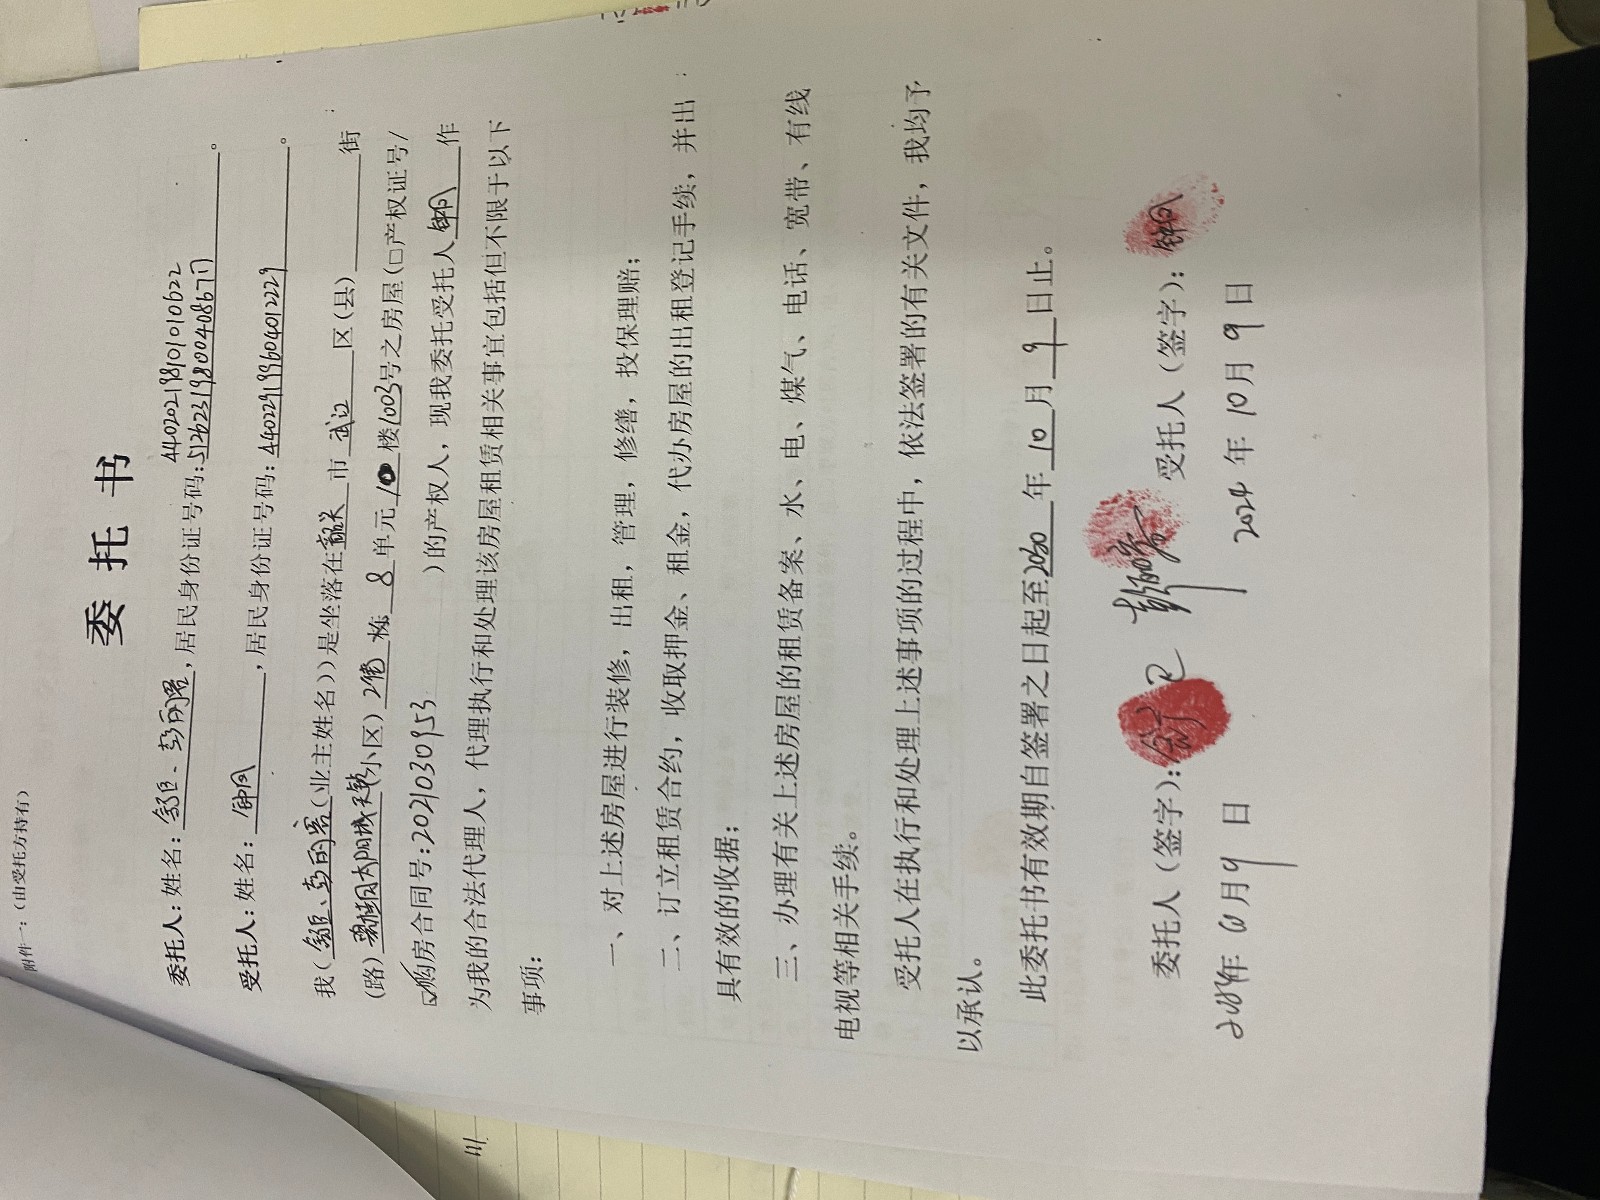 附件一:(由受托方持有)
委 托 书
440202198101010622
委托人:姓名:,居民身份证号码:。
受托人:姓名:,居民身份证号码:440229199604012229。
我((业主姓名))是坐落在韶关市武江区(县)街
(路)(小区)栋8单元10楼1003号之房屋(□产权证号/
☑购房合同号:2021030953)的产权人,现我委托受托人作
为我的合法代理人,代理执行和处理该房屋租赁相关事宜包括但不限于以下
事项:
一、对上述房屋进行装修,出租,管理,修缮,投保理赔;
二、订立租赁合约,收取押金、租金,代办房屋的出租登记手续,并出
具有效的收据;
三、办理有关上述房屋的租赁备案、水、电、煤气、电话、宽带、有线
电视等相关手续。
受托人在执行和处理上述事项的过程中,依法签署的有关文件,我均予
以承认。
此委托书有效期自签署之日起至2030年10月9日止。
委托人(签字): 受托人(签字):
2024年10月9日 2024年10月9日